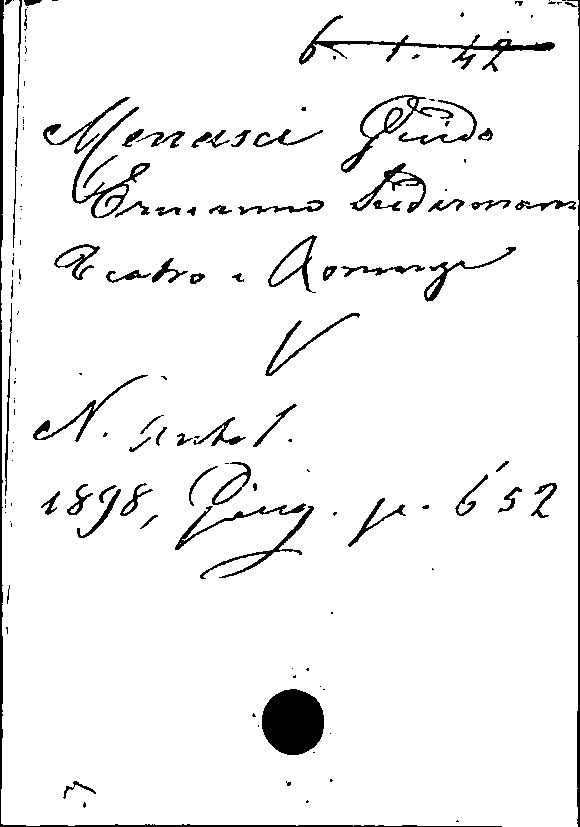 6. 1. 42
Menasci Guido
Ermanno Sudermann
Teatro e Romanzi
V
N. Antol.
1898, Giug. p. 652